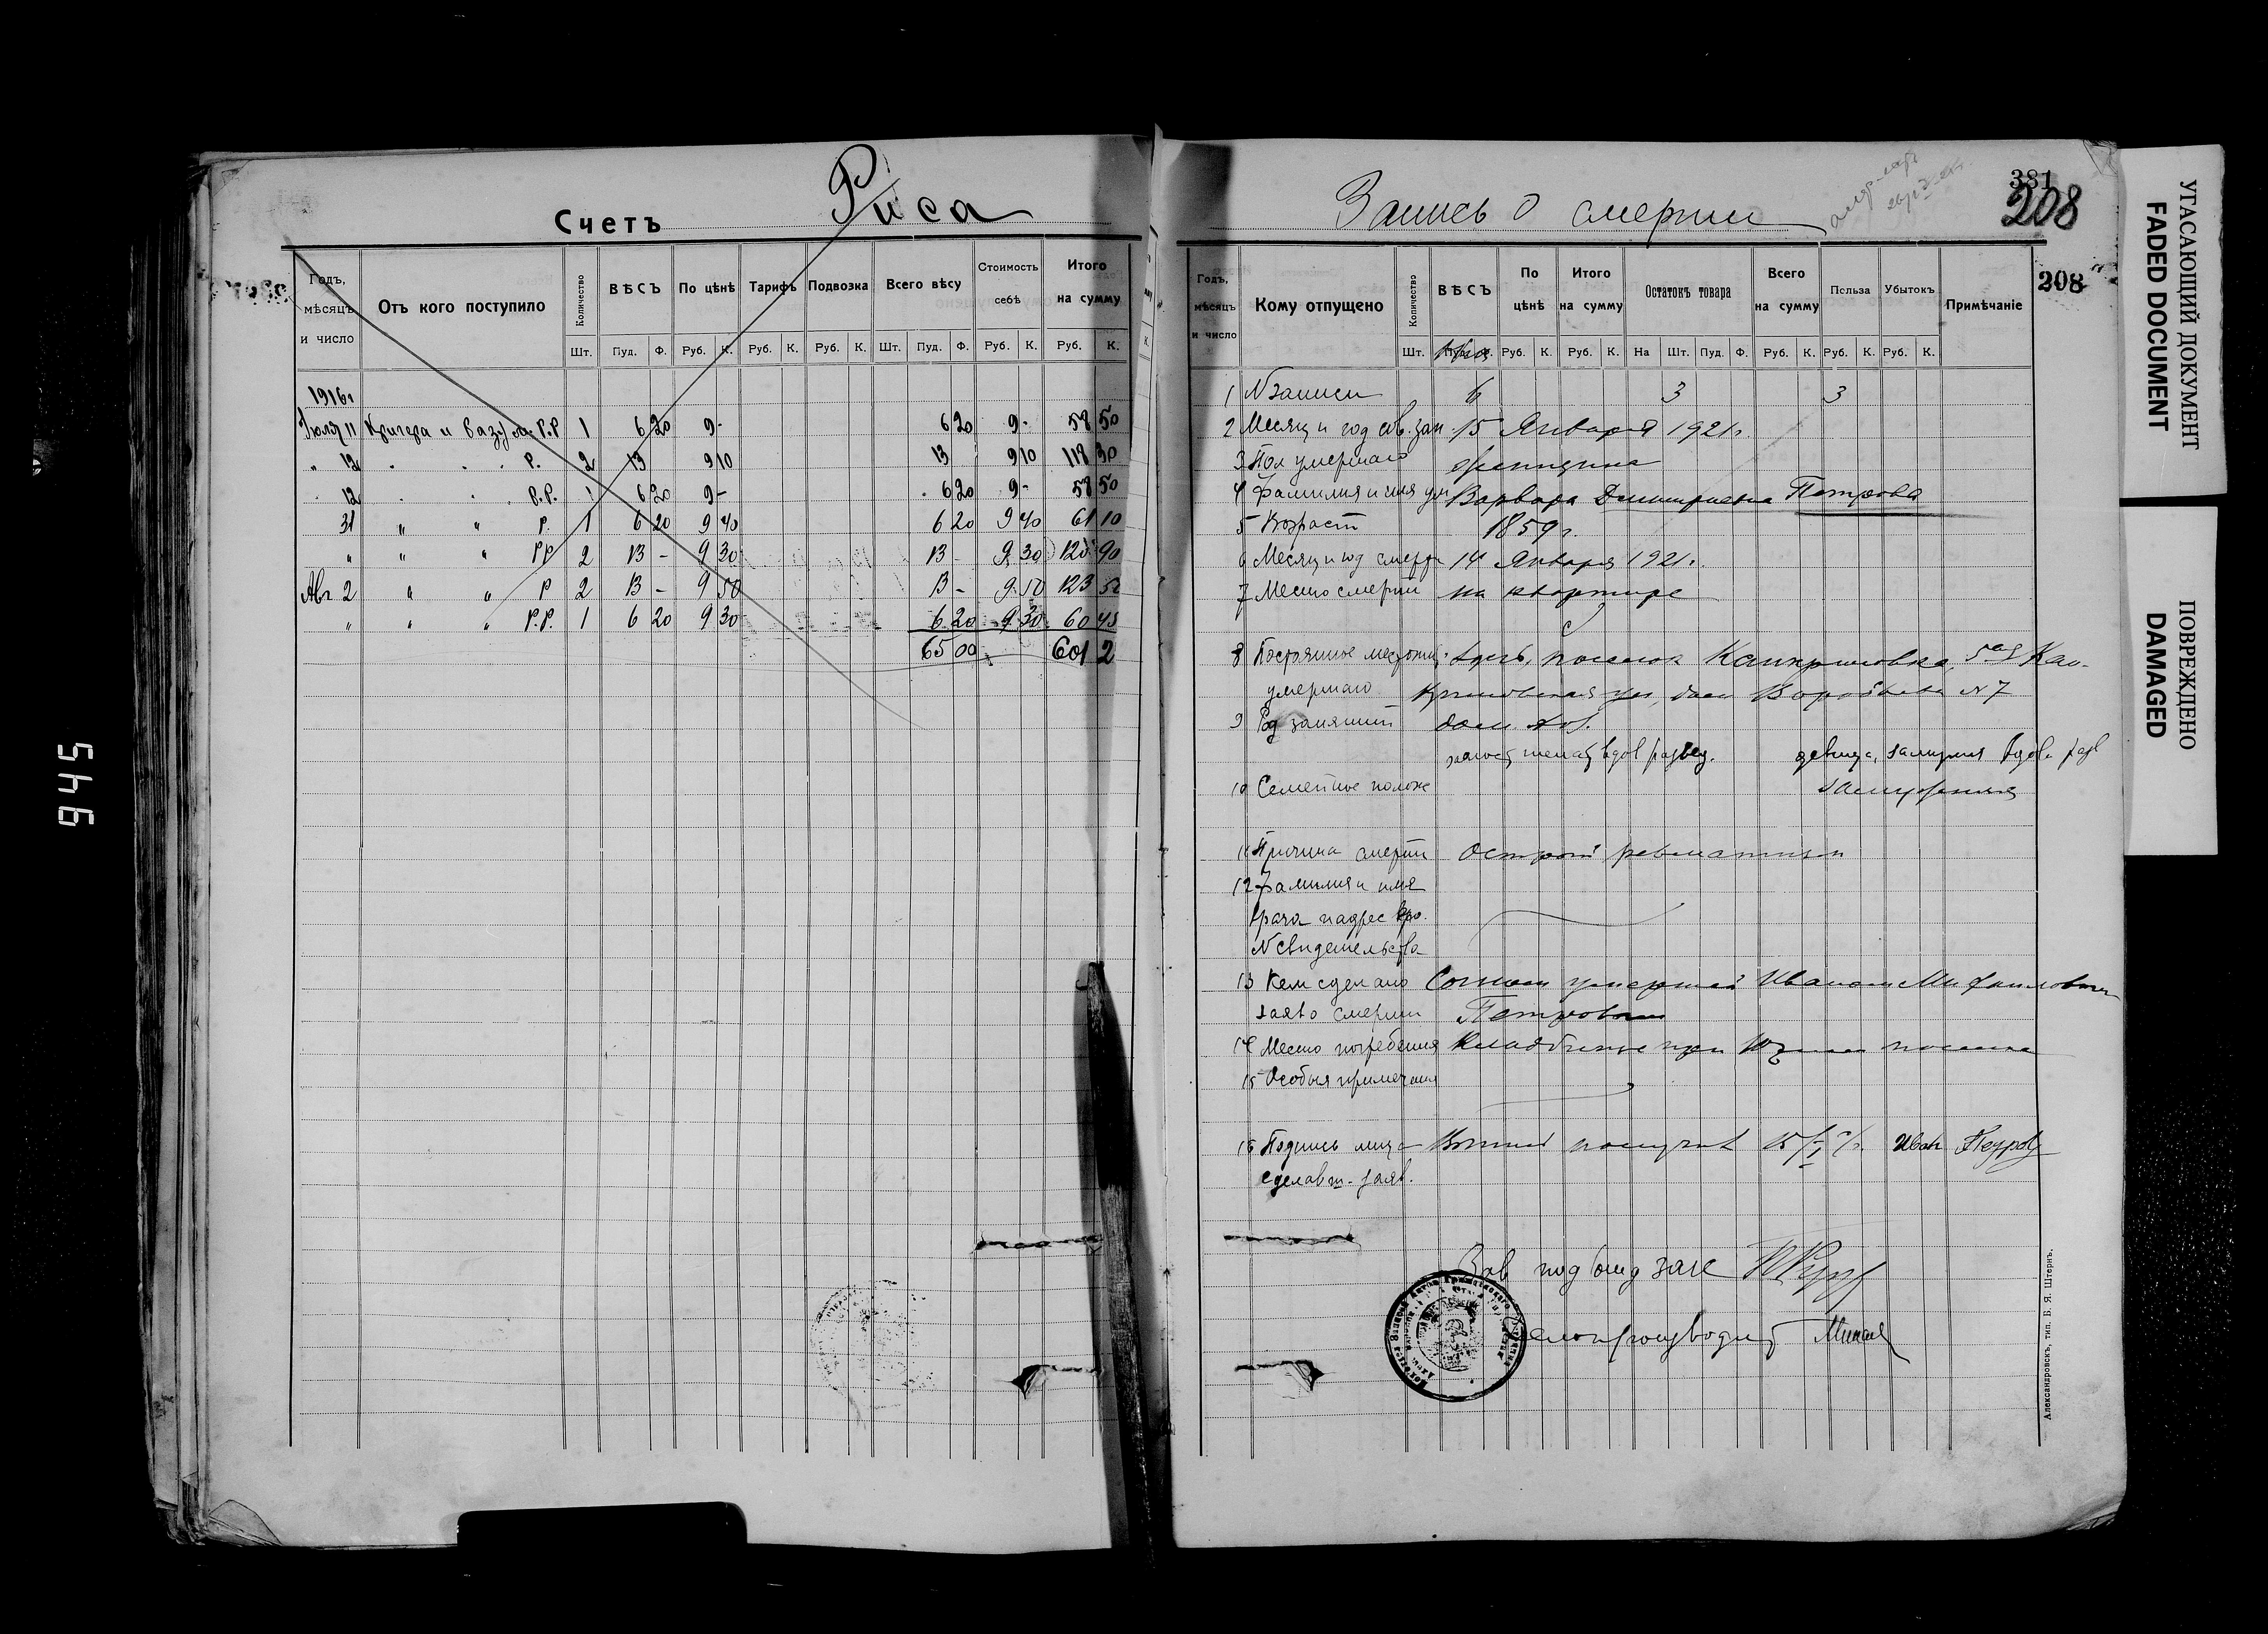 5446
Счетъ Риса
Годъ, мѣсяцъ и число
Отъ кого поступило
Количество
ВѢСЪ
По цѣнѣ
Тарифъ
Подвозка
Всего вѣсу
Стоимость себѣ
Итого на сумму
Шт. Пуд. Ф. Руб. К. Руб. К. Руб. К. Шт. Пуд. Ф. Руб. К. Руб. К.
1916г
Июля 11 Кригера и Р.Р 1 6 20 9 - 6 20 9 - 58 50
" 12 " " Р. 2 13 9 10 13 9 10 118 30
12 " " Р.Р. 1 6 20 9 - 6 20 9 - 58 50
31 " " Р. 1 6 20 9 40 6 20 9 40 61 10
" " " РР 2 13 - 9 30 13 - 9 30 120 90
Авг 2 " " Р 2 13 - 9 50 13 - 9 50 123 50
" " " Р.Р. 1 6 20 9 30 6 20 9 30 60 45
65 00 601 2
Запись о смерти
381
208
208
Годъ, мѣсяцъ и число
Кому отпущено
Количество
ВѢСЪ
По цѣнѣ
Итого на сумму
Остатокъ товара
Всего на сумму
Польза
Убытокъ
Примѣчаніе
Шт. Руб. К. Руб. К. На Шт. Пуд. Ф. Руб. К. Руб. К. Руб. К.
1 N записи 6 3 3
2 Месяц и год сов. зап. 15 Января 1921г.
3 Пол умершаго женщина
4 Фамилия и имя ум Варвара Дмитриевна Петрова
5 Возраст 1859 г.
6 Месяц и год смерт 14 Января 1921г.
7 Место смерти на квартире
8 Постоянное местожит. здесь, поселок
умершаго ул, дом N 7
9 Род занятий дом. хоз.
холост женат вдов развед. девица, замужняя вдова разв
10 Семейное полож замужняя
11 Причина смерти Острый ревматизм
12 Фамилия и имя
врача и адрес его.
N свидетельства
13 Кем сделано Сыном умершей Иваном Михайлович
заяв о смерти Петровым
14 Место погребения Кладбище при поселке
15 Особыя примечания
16 Подпись лица получил 15/I Иван Петров
сделавш. заяв.
Зав подъотд зап
Делопроизводит
Александровскъ, тип. Б. Я. Штернъ.
УГАСАЮЩИЙ ДОКУМЕНТ
FADED DOCUMENT
ПОВРЕЖДЕНО
DAMAGED